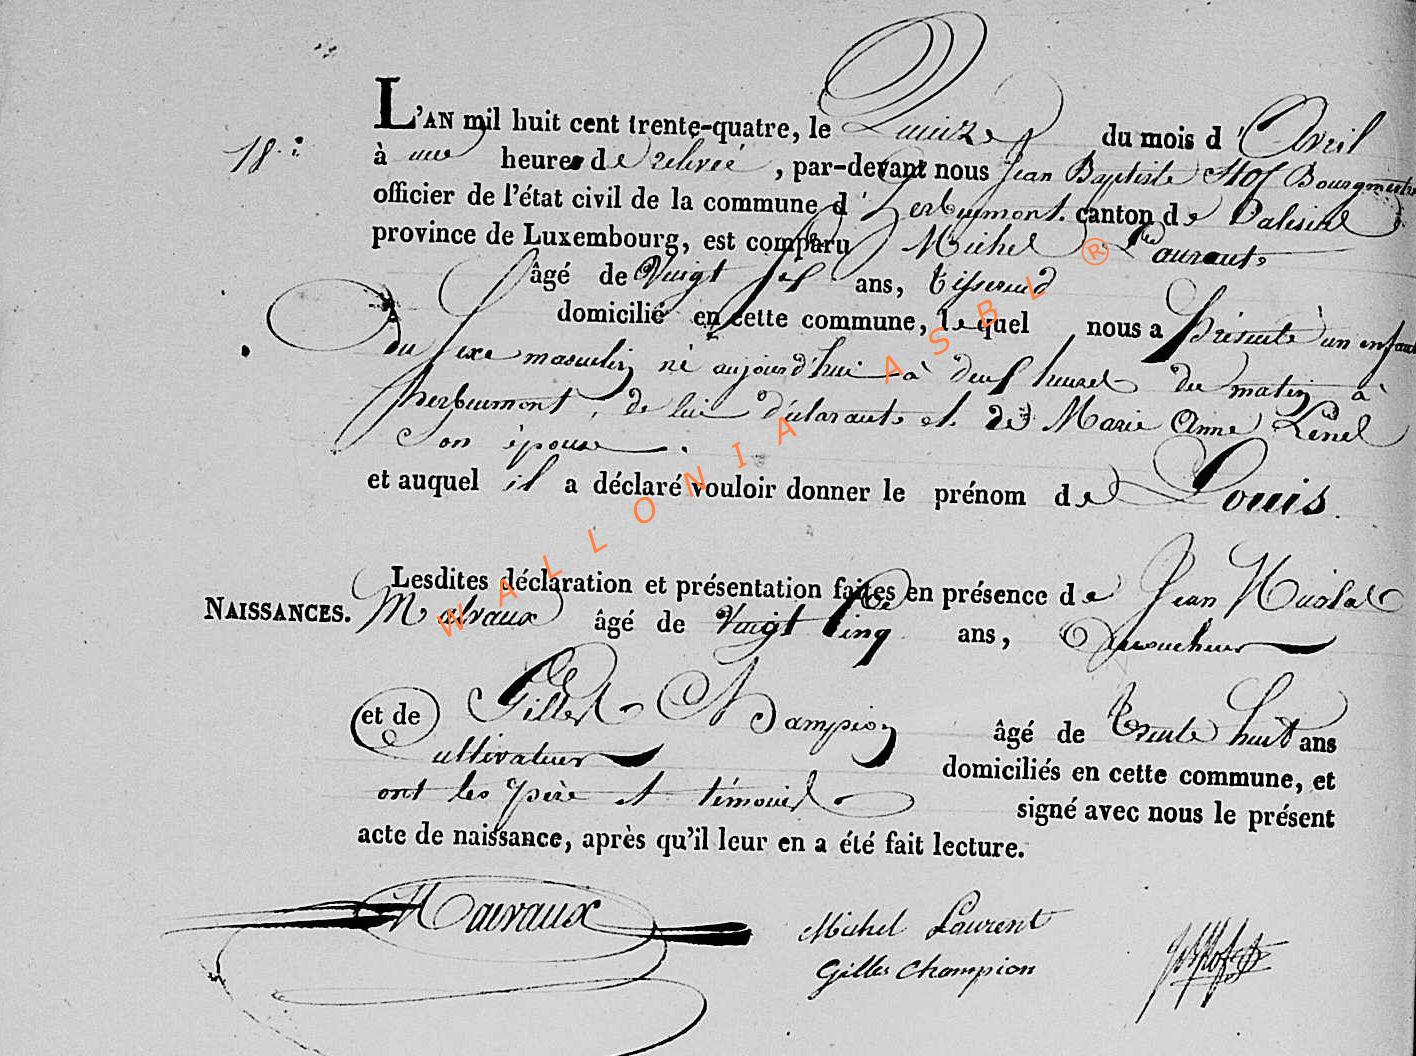 L'AN mil huit cent trente-quatre, le Quinze du mois d'Avril
18.
à une heures de relevée, par-devant nous Jean Baptiste Bourgmestre
officier de l'état civil de la commune d'herbeumont canton de Paliseul
province de Luxembourg, est comparu Michel Laurent
âgé de Vingt ans, tisserand
domicilié en cette commune, lequel nous a présenté un enfant
du sexe masculin né aujourd'hui à deux heures du matin à
herbeumont, de lui déclarant et de Marie Anne
Son épouse.
et auquel il a déclaré vouloir donner le prénom de Louis.
Lesdites déclaration et présentation faites en présence de Jean Nicolas
NAISSANCES. âgé de Vingt Cinq ans,
et de Gilles Champion âgé de trente huit ans
Cultivateur
domiciliés en cette commune, et
ont les père et témoins signé avec nous le présent
acte de naissance, après qu'il leur en a été fait lecture.
Michel Laurent
Gilles Champion
WALLONIA ASBL ®